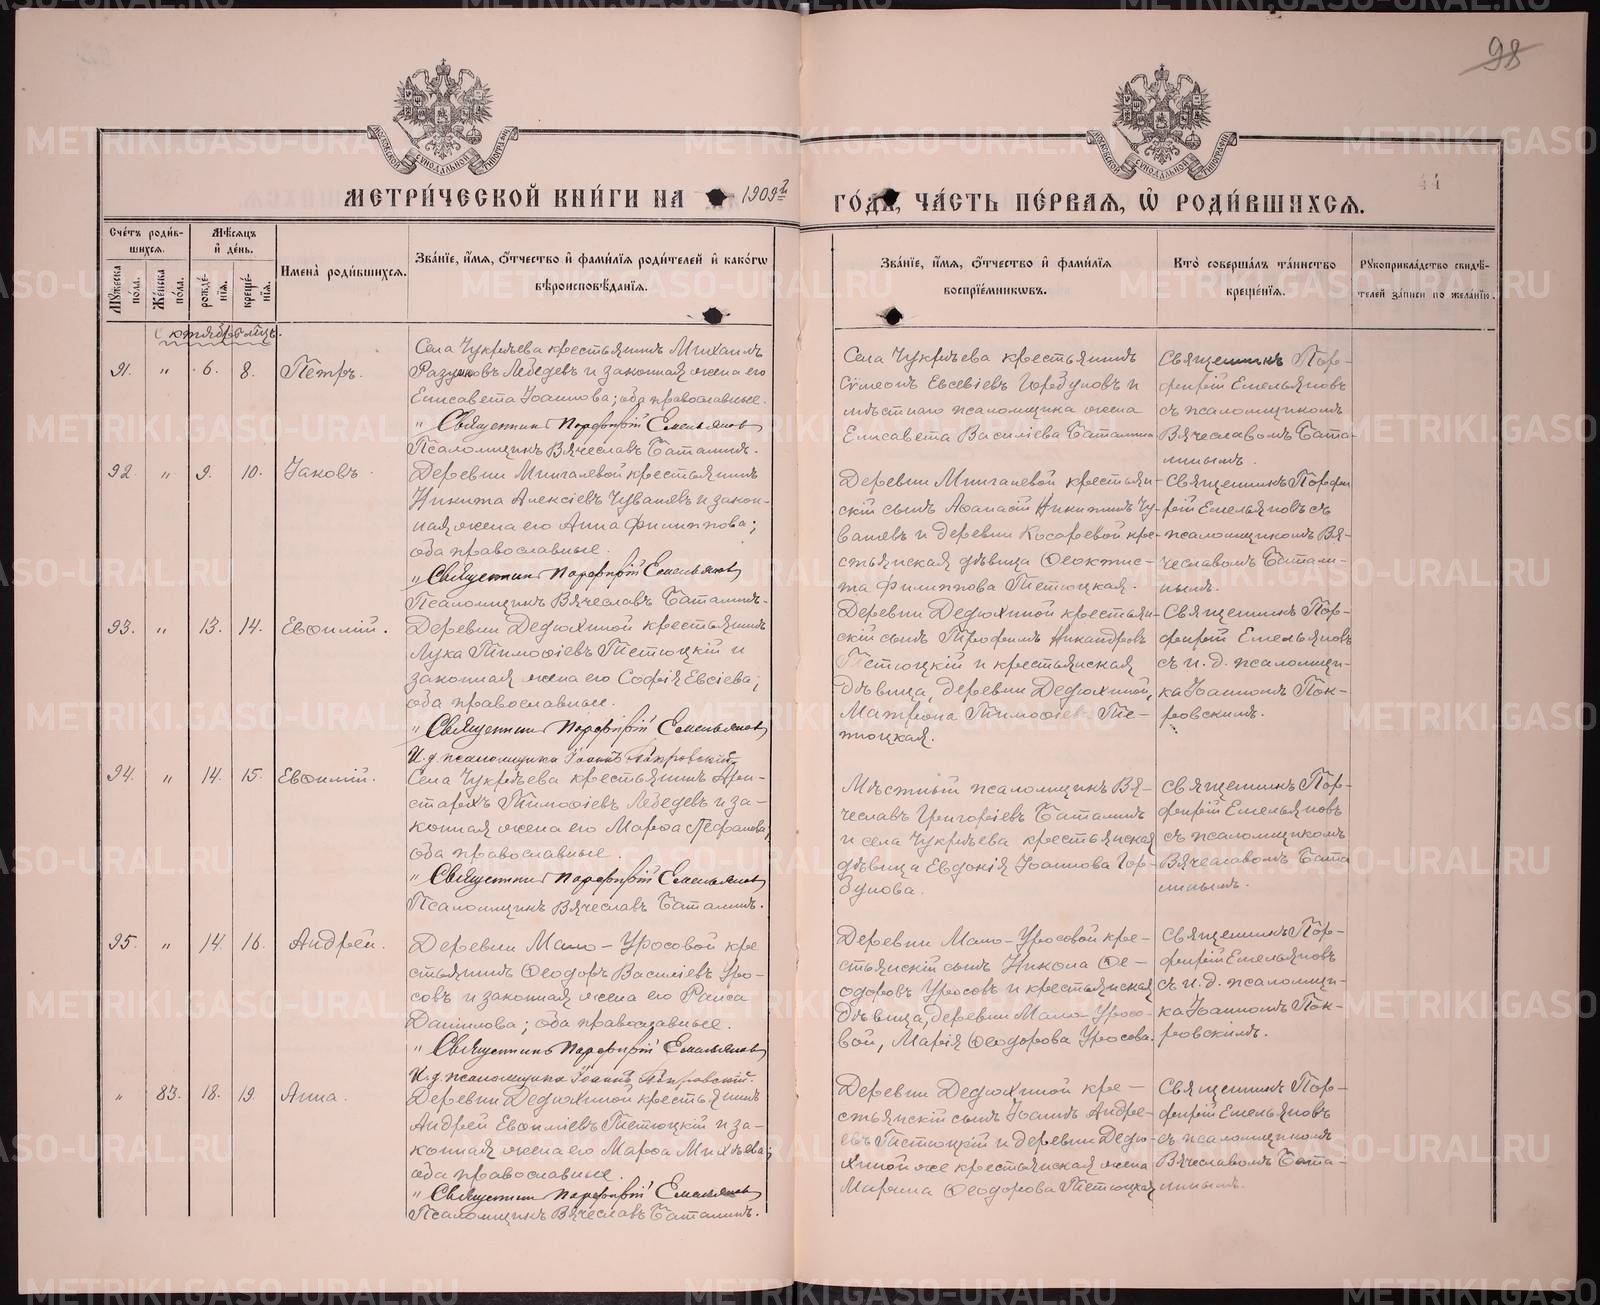 98
44
МОСКОВСКОЙ СѴНОДАЛЬНОЙ ТИПОГРАФІИ
МОСКОВСКОЙ СѴНОДАЛЬНОЙ ТИПОГРАФІИ
МЕТРИ́ЧЕСКОЙ КНИ́ГИ НА 1909 г. ГО́ДЪ, ЧА́СТЬ ПЕ́РВАѦ, Ѡ҆ РОДИ́ВШИХСѦ.
Сче́тъ роди́в-
шихсѧ.
Мꙋ́жеска по́ла.
Же́нска по́ла.
Мѣ́сѧцъ
и҆ де́нь.
рожде́-
нїѧ.
креще́-
нїѧ.
И҆мена̀ роди́вшихсѧ.
Зва́нїе, и҆́мѧ, ѻ҆́тчество и҆ фами́лїѧ роди́телей и҆ како́гѡ
вѣроисповѣ́данїѧ.
Зва́нїе, и҆́мѧ, ѻ҆́тчество и҆ фами́лїѧ
воспрїе́мникѡвъ.
Кто̀ соверша́лъ та́инство
креще́нїѧ.
Рꙋкоприкла́дство свидѣ́-
телей за́писи по жела́нїю.
Октябрь мѣсяцъ.
91. " 6. 8. Петръ.
Села Чукрѣева крестьянинъ Михаилъ
Лебедевъ и законная жена его
Елисавета Іоаннова; оба православные.
" Священникъ Порфирій Емельяновъ
Псаломщикъ Вячеславъ Баталинъ.
Села Чукрѣева крестьянинъ
Сѵмеонъ Евсевіевъ Горбуновъ и
мѣстнаго псаломщика жена
Елисавета Василіева Баталина
Священникъ Пор-
фирій Емельяновъ
съ псаломщикомъ
Вячеславомъ Бата-
линымъ.
92. " 9. 10. Іаковъ.
Деревни Мингалевой крестьянинъ
Никита Алексіевъ Чувашевъ и закон-
ная жена его Анна Филиппова;
оба православные.
" Священникъ Порфирій Емельяновъ
Псаломщикъ Вячеславъ Баталинъ.
Деревни Мингалевой крестьян-
скій сынъ Аѳанасій Никитинъ Чу-
вашевъ и деревни Косаревой кре-
стьянская дѣвица Ѳеоктис-
та Филиппова Тетюцкая.
Священникъ Порфи-
рій Емельяновъ съ
псаломщикомъ Вя-
чеславомъ Батали-
нымъ.
93. " 13. 14. Евѳимій.
Деревни Дедюхиной крестьянинъ
Лука Тимоѳіевъ Тетюцкій и
законная жена его Софія Евсіева;
оба православные.
" Священникъ Порфирій Емельяновъ
И. д. псаломщика Іоаннъ Покровскій.
Деревни Дедюхиной крестьян-
скій сынъ Трофимъ Никандровъ
Тетюцкій и крестьянская
дѣвица, деревни Дедюхиной,
Матрона Тимоѳіева Те-
тюцкая.
Священникъ Пор-
фирій Емельяновъ
съ и. д. псаломщи-
ка Іоанномъ Пок-
ровскимъ.
94. " 14. 15. Евѳимій.
Села Чукрѣева крестьянинъ Ари-
стархъ Тимоѳіевъ Лебедевъ и за-
конная жена его Марѳа Стефанова;
оба православные.
" Священникъ Порфирій Емельяновъ
Псаломщикъ Вячеславъ Баталинъ.
Мѣстный псаломщикъ Вя-
чеславъ Григоріевъ Баталинъ
и села Чукрѣева крестьянская
дѣвица Евдокія Іоаннова Гор-
бунова.
Священникъ Пор-
фирій Емельяновъ
съ псаломщикомъ
Вячеславомъ Бата-
линымъ.
95. " 14. 16. Андрей.
Деревни Мало-Уросовой кре-
стьянинъ Ѳеодоръ Василіевъ Уро-
совъ и законная жена его Раиса
Даніилова; оба православные.
" Священникъ Порфирій Емельяновъ
И. д. псаломщика Іоаннъ Покровскій.
Деревни Мало-Уросовой кре-
стьянскій сынъ Никола Ѳе-
одоровъ Уросовъ и крестьянская
дѣвица, деревни Мало-Уросо-
вой, Марія Ѳеодорова Уросова.
Священникъ Пор-
фирій Емельяновъ
съ и. д. псаломщи-
ка Іоанномъ Пок-
ровскимъ.
" 83. 18. 19. Анна.
Деревни Дедюхиной крестьянинъ
Андрей Евѳиміевъ Тетюцкій и за-
конная жена его Марѳа Михѣева;
оба православные.
" Священникъ Порфирій Емельяновъ
Псаломщикъ Вячеславъ Баталинъ.
Деревни Дедюхиной кре-
стьянскій сынъ Іоаннъ Андре-
евъ Тетюцкій и деревни Дедю-
хиной же крестьянская жена
Марина Ѳеодорова Тетюцкая
Священникъ Пор-
фирій Емельяновъ
съ псаломщикомъ
Вячеславомъ Бата-
линымъ.
METRIKI.GASO-URAL.RU